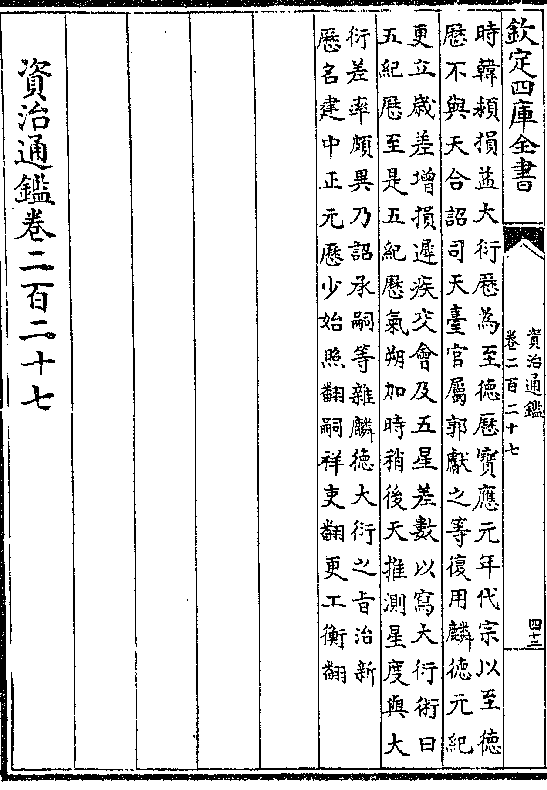 欽定四庫全書
資治通鑑
卷二百二十七
四十三
時韓頴損益大衍厯為至德厯寶應元年代宗以至德
厯不與天合詔司天臺官屬郭獻之等復用麟德元紀
更立歳差增損遲疾交會及五星差數以寫大衍術曰
五紀厯至是五紀厯氣朔加時稍後天推測星度與大
衍差率頗異乃詔承嗣等雜麟德大衍之㫖治新
厯名建中正元厯少始照翻嗣祥吏翻更工衡翻
資治通鑑卷二百二十七